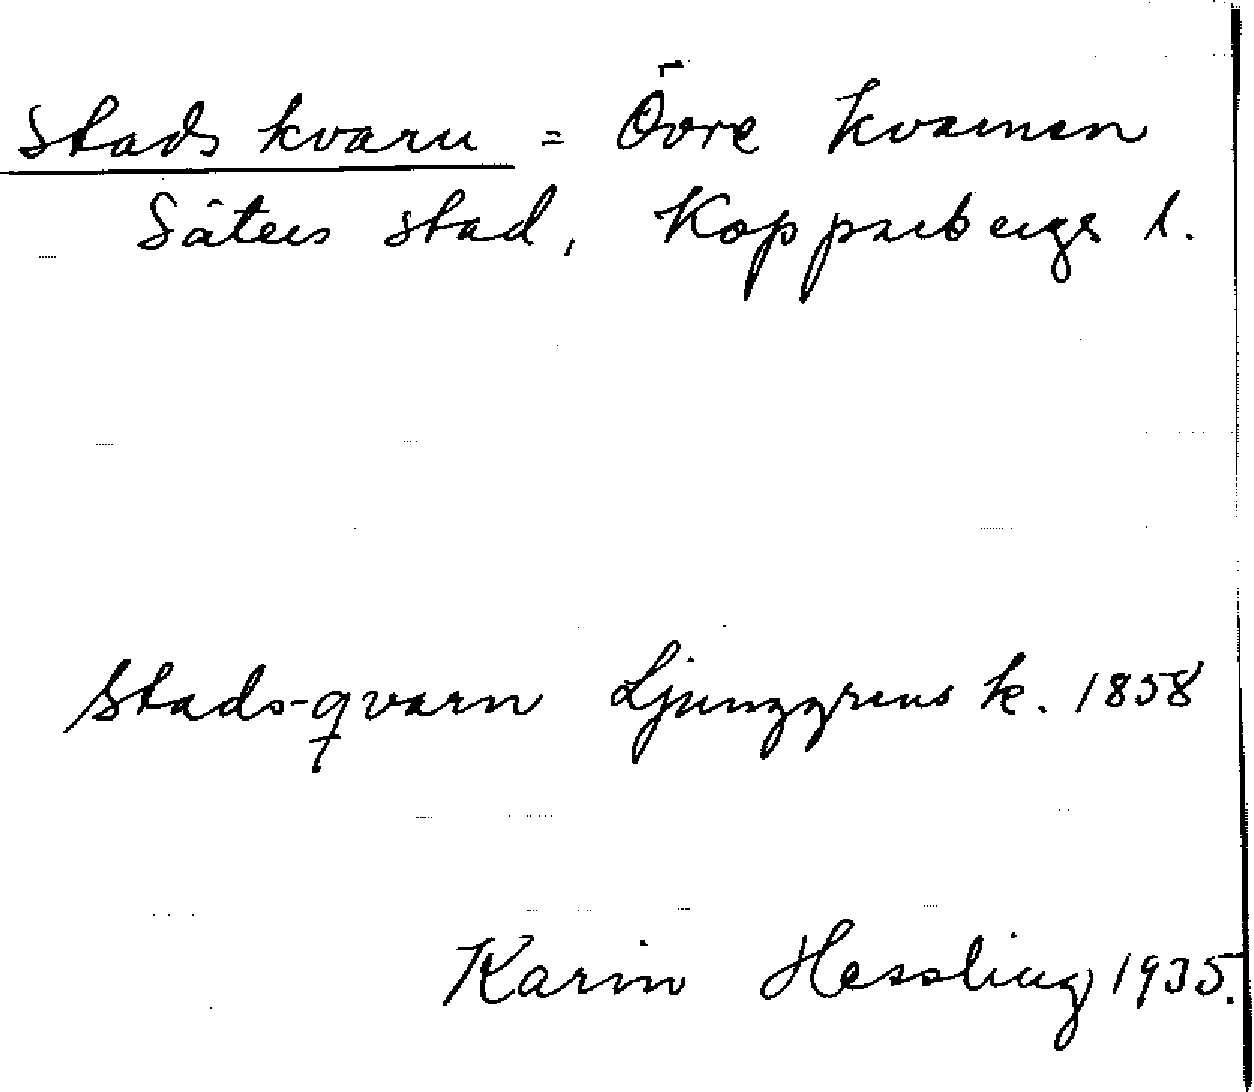 Stadskvarn = Övre kvarnen
Säters stad, Kopparbergs l.
Stads-qvarn Ljunggrens k. 1858
Karin Hessling 1935.